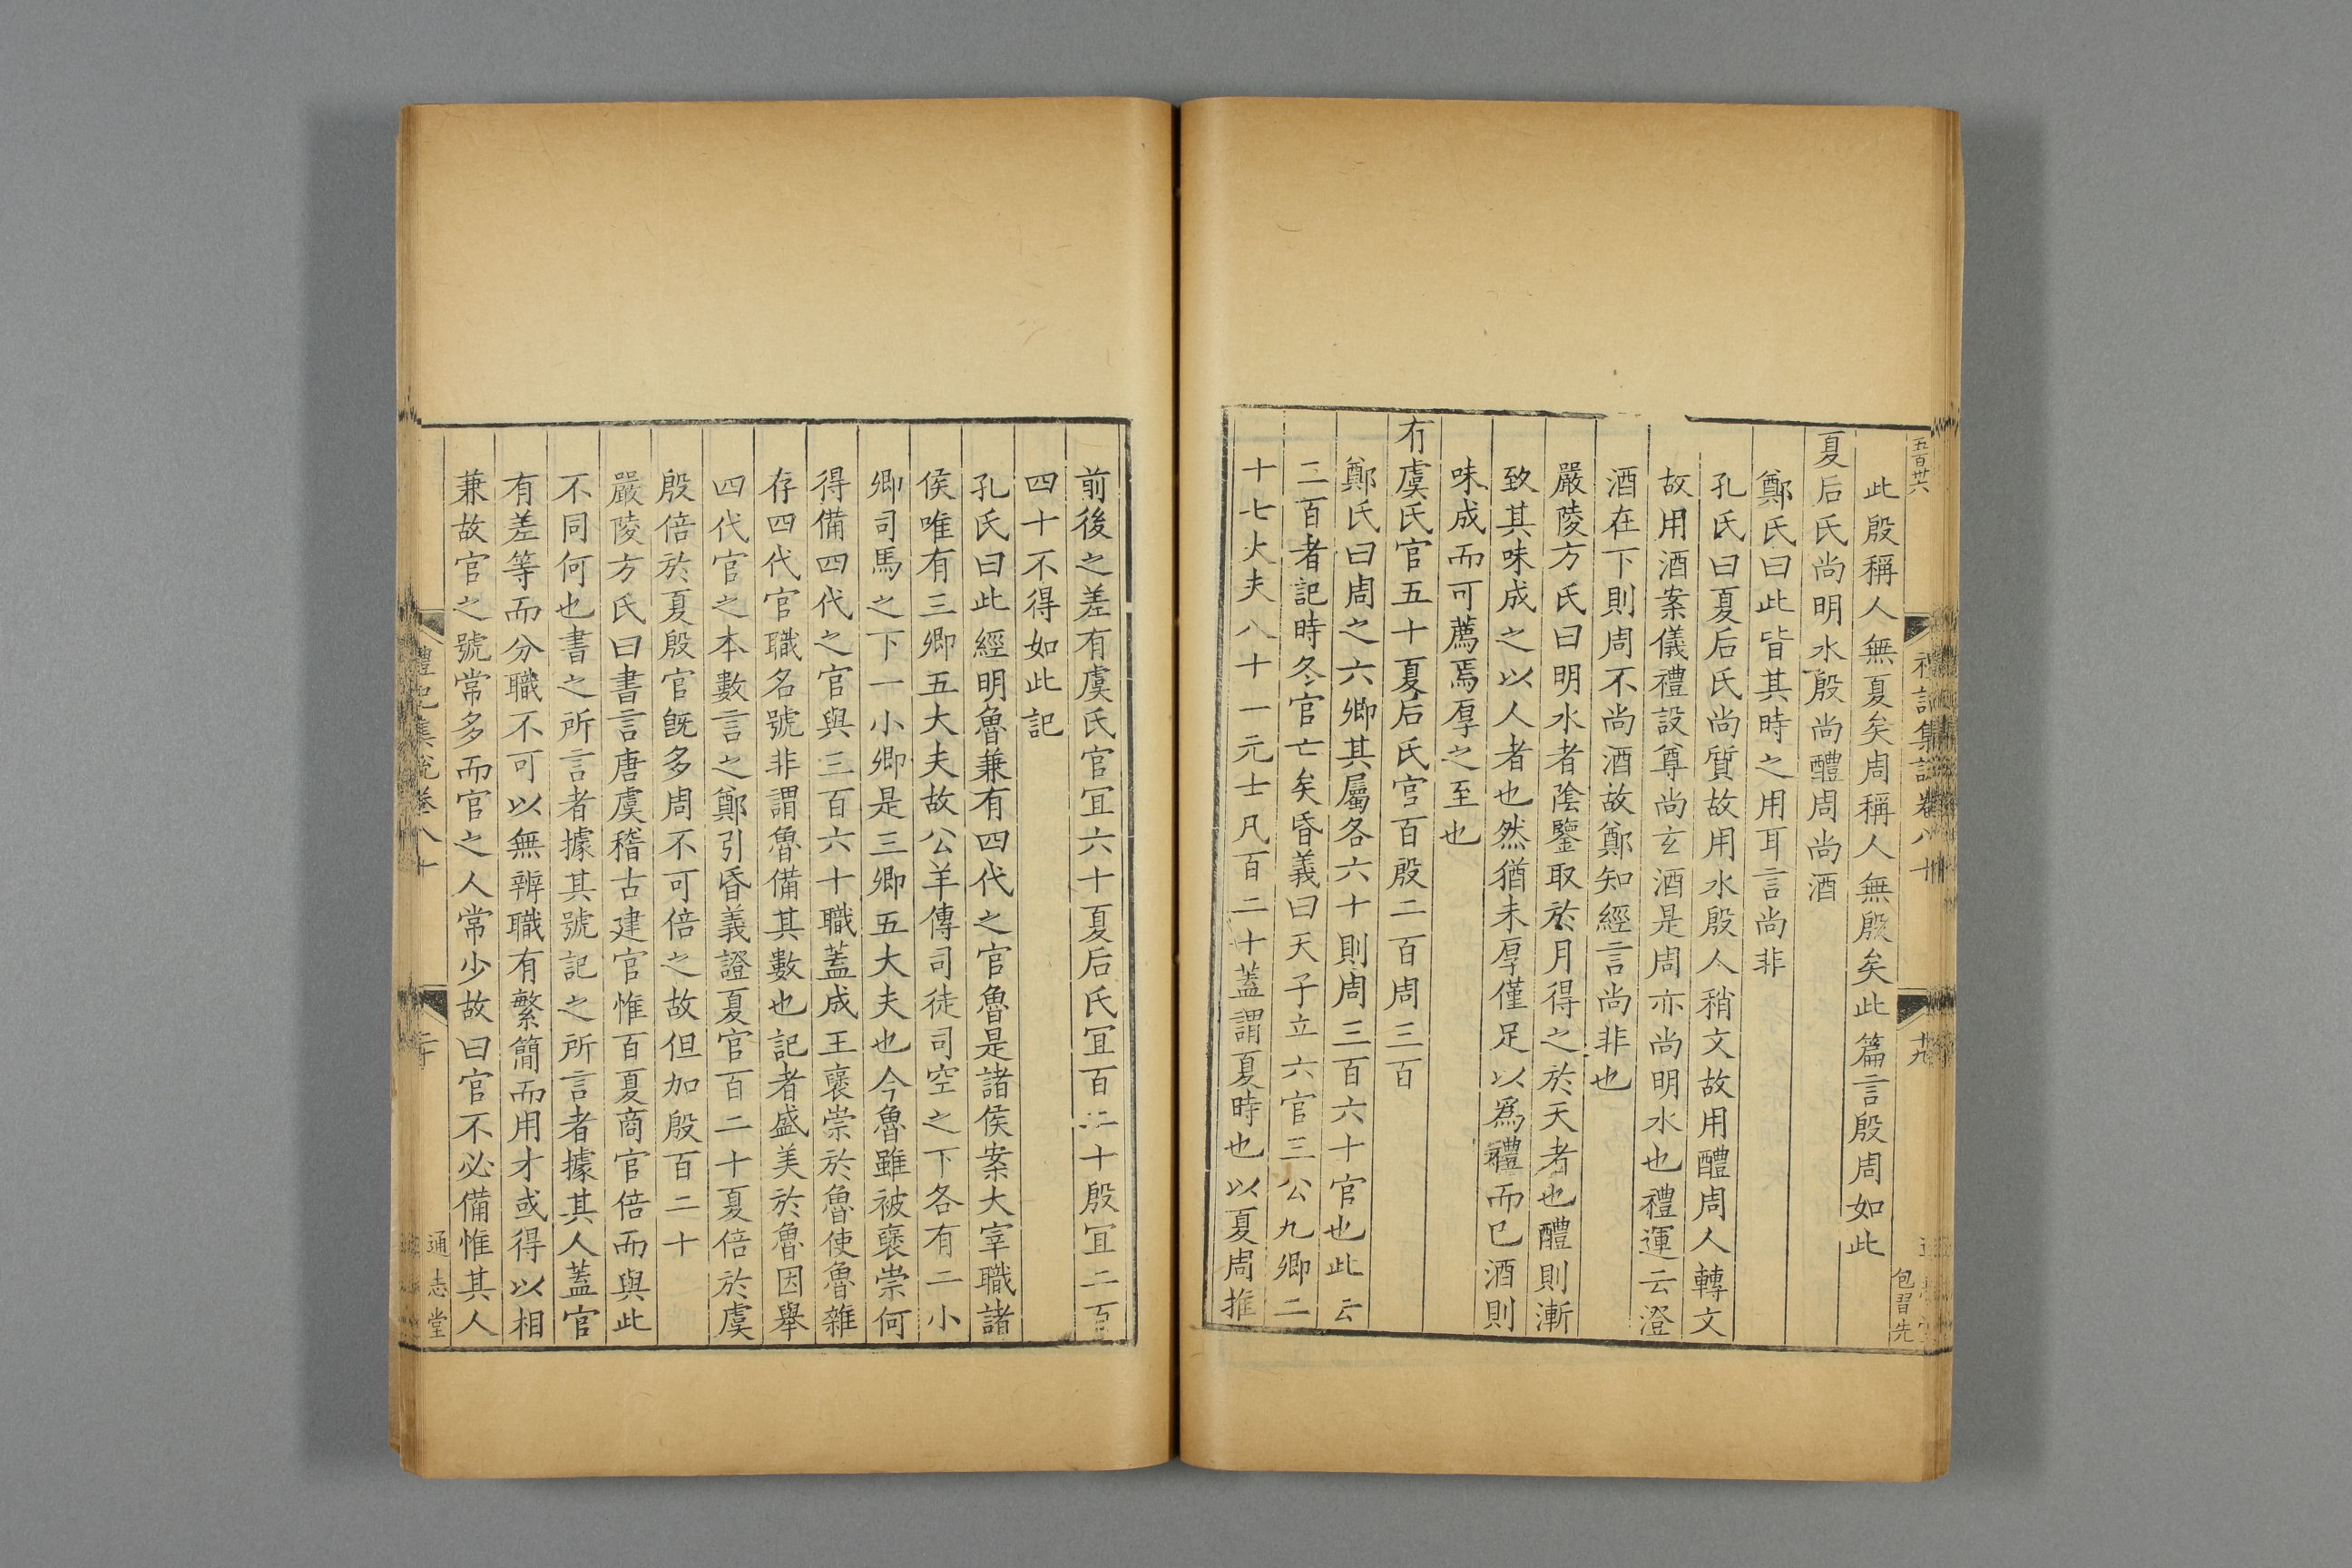 五百卅六
禮記集說卷八十
十九
包習先
此殷稱人無夏矣周稱人無殷矣此篇言殷周如此
夏后氏尚明水殷尚醴周尚酒
鄭氏曰此皆其時之用耳言尚非
孔氏曰夏后氏尚質故用水殷人稍文故用醴周人轉文
故用酒案儀禮設尊尚玄酒是周亦尚明水也禮運云澄
酒在下則周不尚酒故鄭知經言尚非也
嚴陵方氏曰明水者陰鑒取於月得之於天者也醴則漸
致其味成之以人者也然猶未厚僅足以爲禮而已酒則
味成而可薦焉厚之至也
有虞氏官五十夏后氏官百殷二百周三百
鄭氏曰周之六卿其屬各六十則周三百六十官也此云
三百者記時冬官亡矣昏義曰天子立六官三公九卿二
十七大夫八十一元士凡百二十蓋謂夏時也以夏周推
前後之差有虞氏官宜六十夏后氏宜百二十殷宜二百
四十不得如此記
孔氏曰此經明魯兼有四代之官魯是諸侯案大宰職諸
侯唯有三卿五大夫故公羊傳司徒司空之下各有二小
卿司馬之下一小卿是三卿五大夫也今魯雖被襃崇何
得備四代之官與三百六十職蓋成王襃崇於魯使魯雜
存四代官職名號非謂魯備其數也記者盛美於魯因舉
四代官之本數言之鄭引昏義證夏官百二十夏倍於虞
殷倍於夏殷官旣多周不可倍之故但加殷百二十
嚴陵方氏曰書言唐虞稽古建官惟百夏商官倍而與此
不同何也書之所言者據其號記之所言者據其人蓋官
有差等而分職不可以無辨職有繁簡而用才或得以相
兼故官之號常多而官之人常少故曰官不必備惟其人
禮記集說卷八十
二十
通志堂